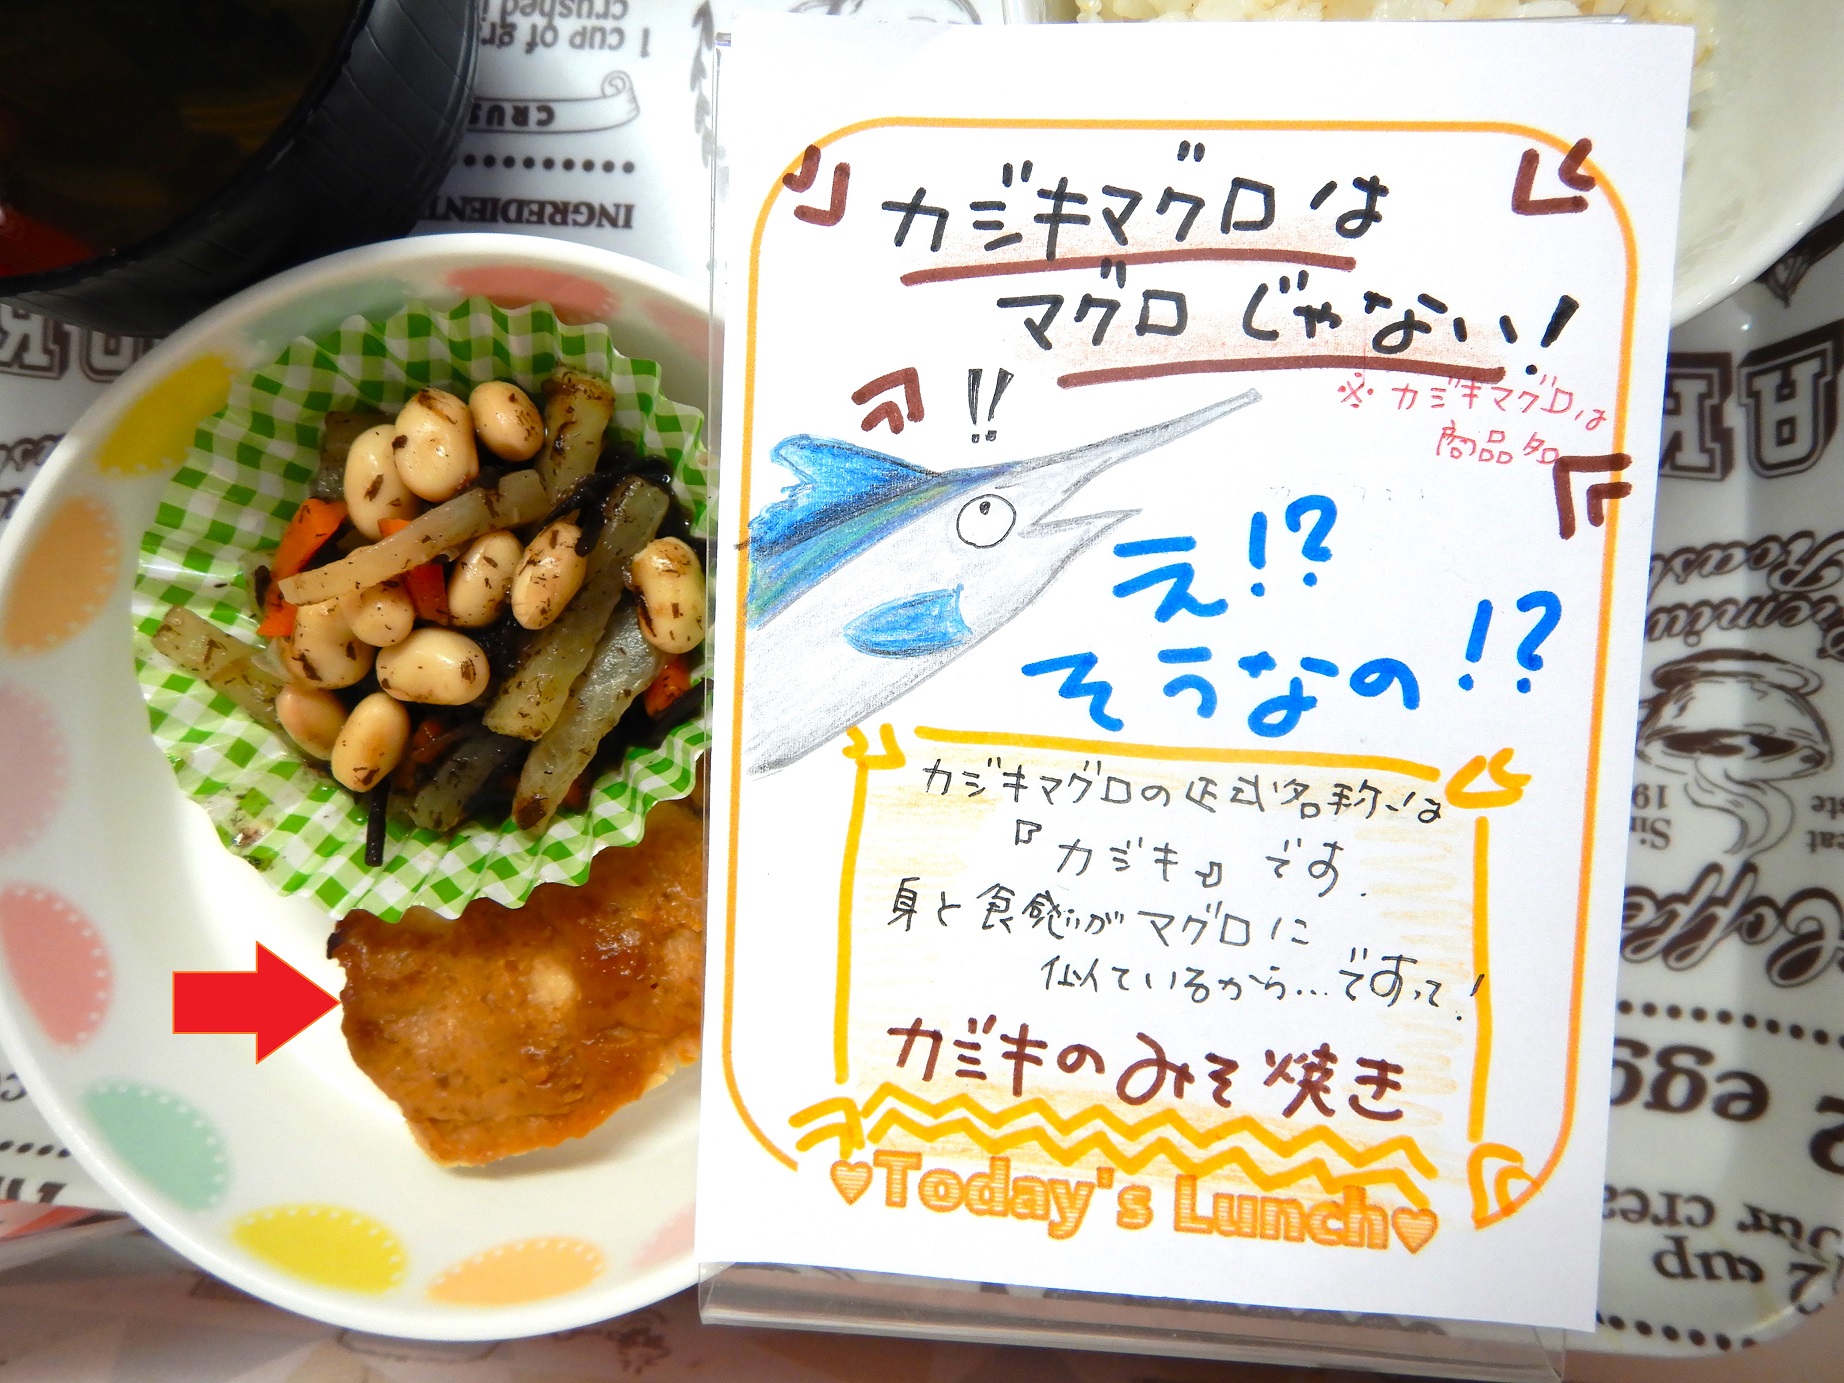 1 cup of gr
crushed i
CRUS
INGREDIENT
カジキマグロは
マグロじゃない!
!!
※カジキマグロは
商品名
え!?
そうなの!?
カジキマグロの正式名称は
『カジキ』です.
身と食感がマグロに
似ているから…ですって!
カジキのみそ焼き
♥Today's Lunch♥
Roast
Premium
19
Sin
Coffee
egg
our crea
1/2 cup